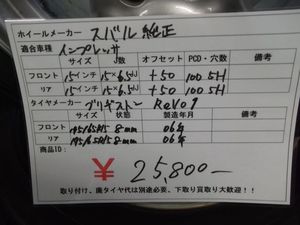 ホイールメーカー スバル 純正
適合車種 インプレッサ
サイズ J数 オフセット PCD・穴数 備考
フロント 15インチ 15×6.5J +50 100 5H
リア 15インチ 15×6.5J +50 100 5H
タイヤメーカー ブリヂストン ReVo1
サイズ 状態 製造年月 備考
フロント 195/65R15 8mm 06年
リア 195/65R15 8mm 06年
商品ID:
¥ 25,800-
取り付け、廃タイヤ代は別途必要、下取り買取り大歓迎!!